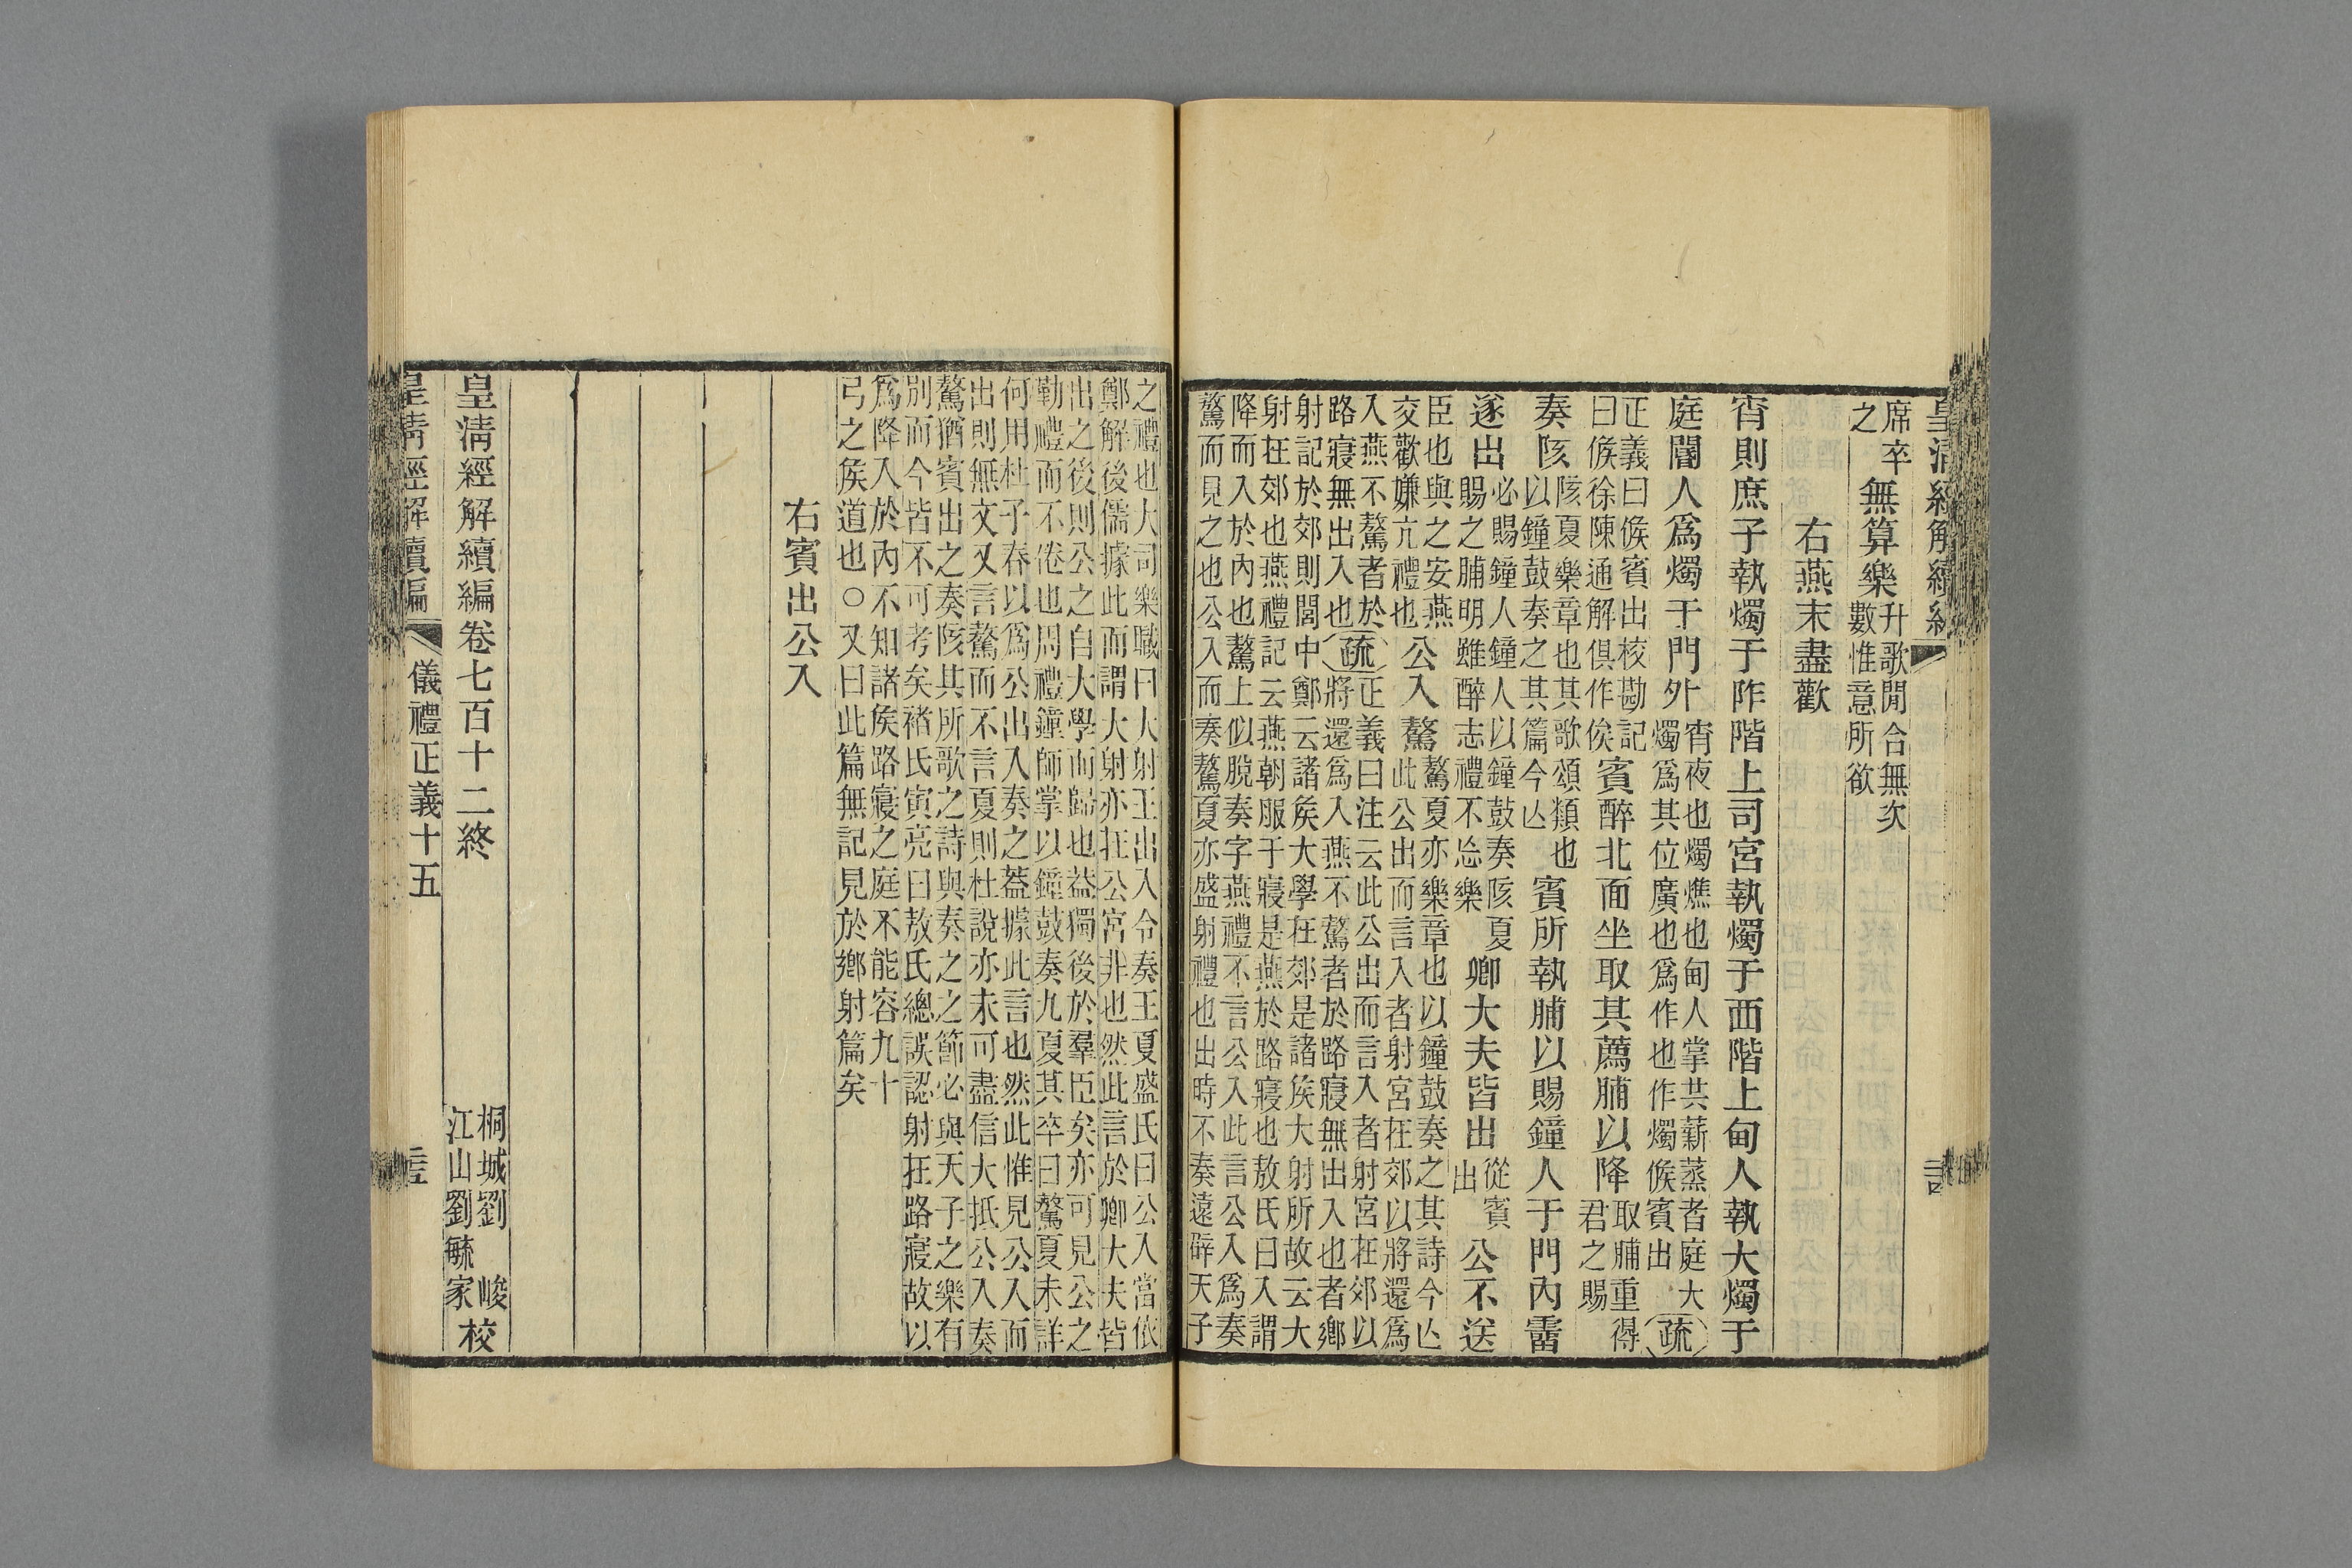 皇清經解續編
席卒
之
無算樂
升歌閒合無次
數惟意所欲
右燕末盡歡
宵則庶子執燭于阼階上司宮執燭于西階上甸人執大燭于
庭閽人爲燭于門外
宵夜也燭燋也甸人掌共薪蒸者庭大
燭爲其位廣也爲作也作燭候賓出
疏
正義曰候賓出校勘記
曰候徐陳通解俱作俟
賓醉北面坐取其薦脯以降
取脯重得
君之賜
奏陔
陔夏樂章也其歌頌類也
以鐘鼓奏之其篇今亾
賓所執脯以賜鐘人于門內霤
遂出
必賜鐘人鐘人以鐘鼓奏陔夏
賜之脯明雖醉志禮不忘樂
卿大夫皆出
從賓
出
公不送
臣也與之安燕
交歡嫌亢禮也
公入驁
驁夏亦樂章也以鐘鼓奏之其詩今亾
此公出而言入者射宮在郊以將還爲
入燕不驁者於
路寢無出入也
疏
正義曰注云此公出而言入者射宮在郊以
將還爲入燕不驁者於路寢無出入也者鄉
射記於郊則閭中鄭云諸矦大學在郊是諸矦大射所故云大
射在郊也燕禮記云燕朝服于寢是燕於路寢也敖氏曰入謂
降而入於內也驁上似脫奏字燕禮不言公入此言公入爲奏
驁而見之也公入而奏驁夏亦盛射禮也出時不奏遠辟天子
之禮也大司樂職曰大射王出入令奏王夏盛氏曰公入當依
鄭解後儒據此而謂大射亦在公宮非也然此言於卿大夫皆
出之後則公之自大學而歸也益獨後於羣臣矣亦可見公之
勤禮而不倦也周禮鐘師掌以鐘鼓奏九夏其卒曰驁夏未詳
何用杜子春以爲公出入奏之葢據此言也然此惟見公入而
出則無文又言驁而不言夏則杜說亦未可盡信大抵公入奏
驁猶賓出之奏陔其所歌之詩與奏之之節必與天子之樂有
別而今皆不可考矣褚氏寅亮曰敖氏總誤認射在路寢故以
爲降入於內不知諸矦路寢之庭不能容九十
弓之矦道也○又曰此篇無記見於鄉射篇矣
右賓出公入
皇清經解續編卷七百十二終
桐城劉 峻
江山劉毓家
校
皇清經解續編 儀禮正義十五